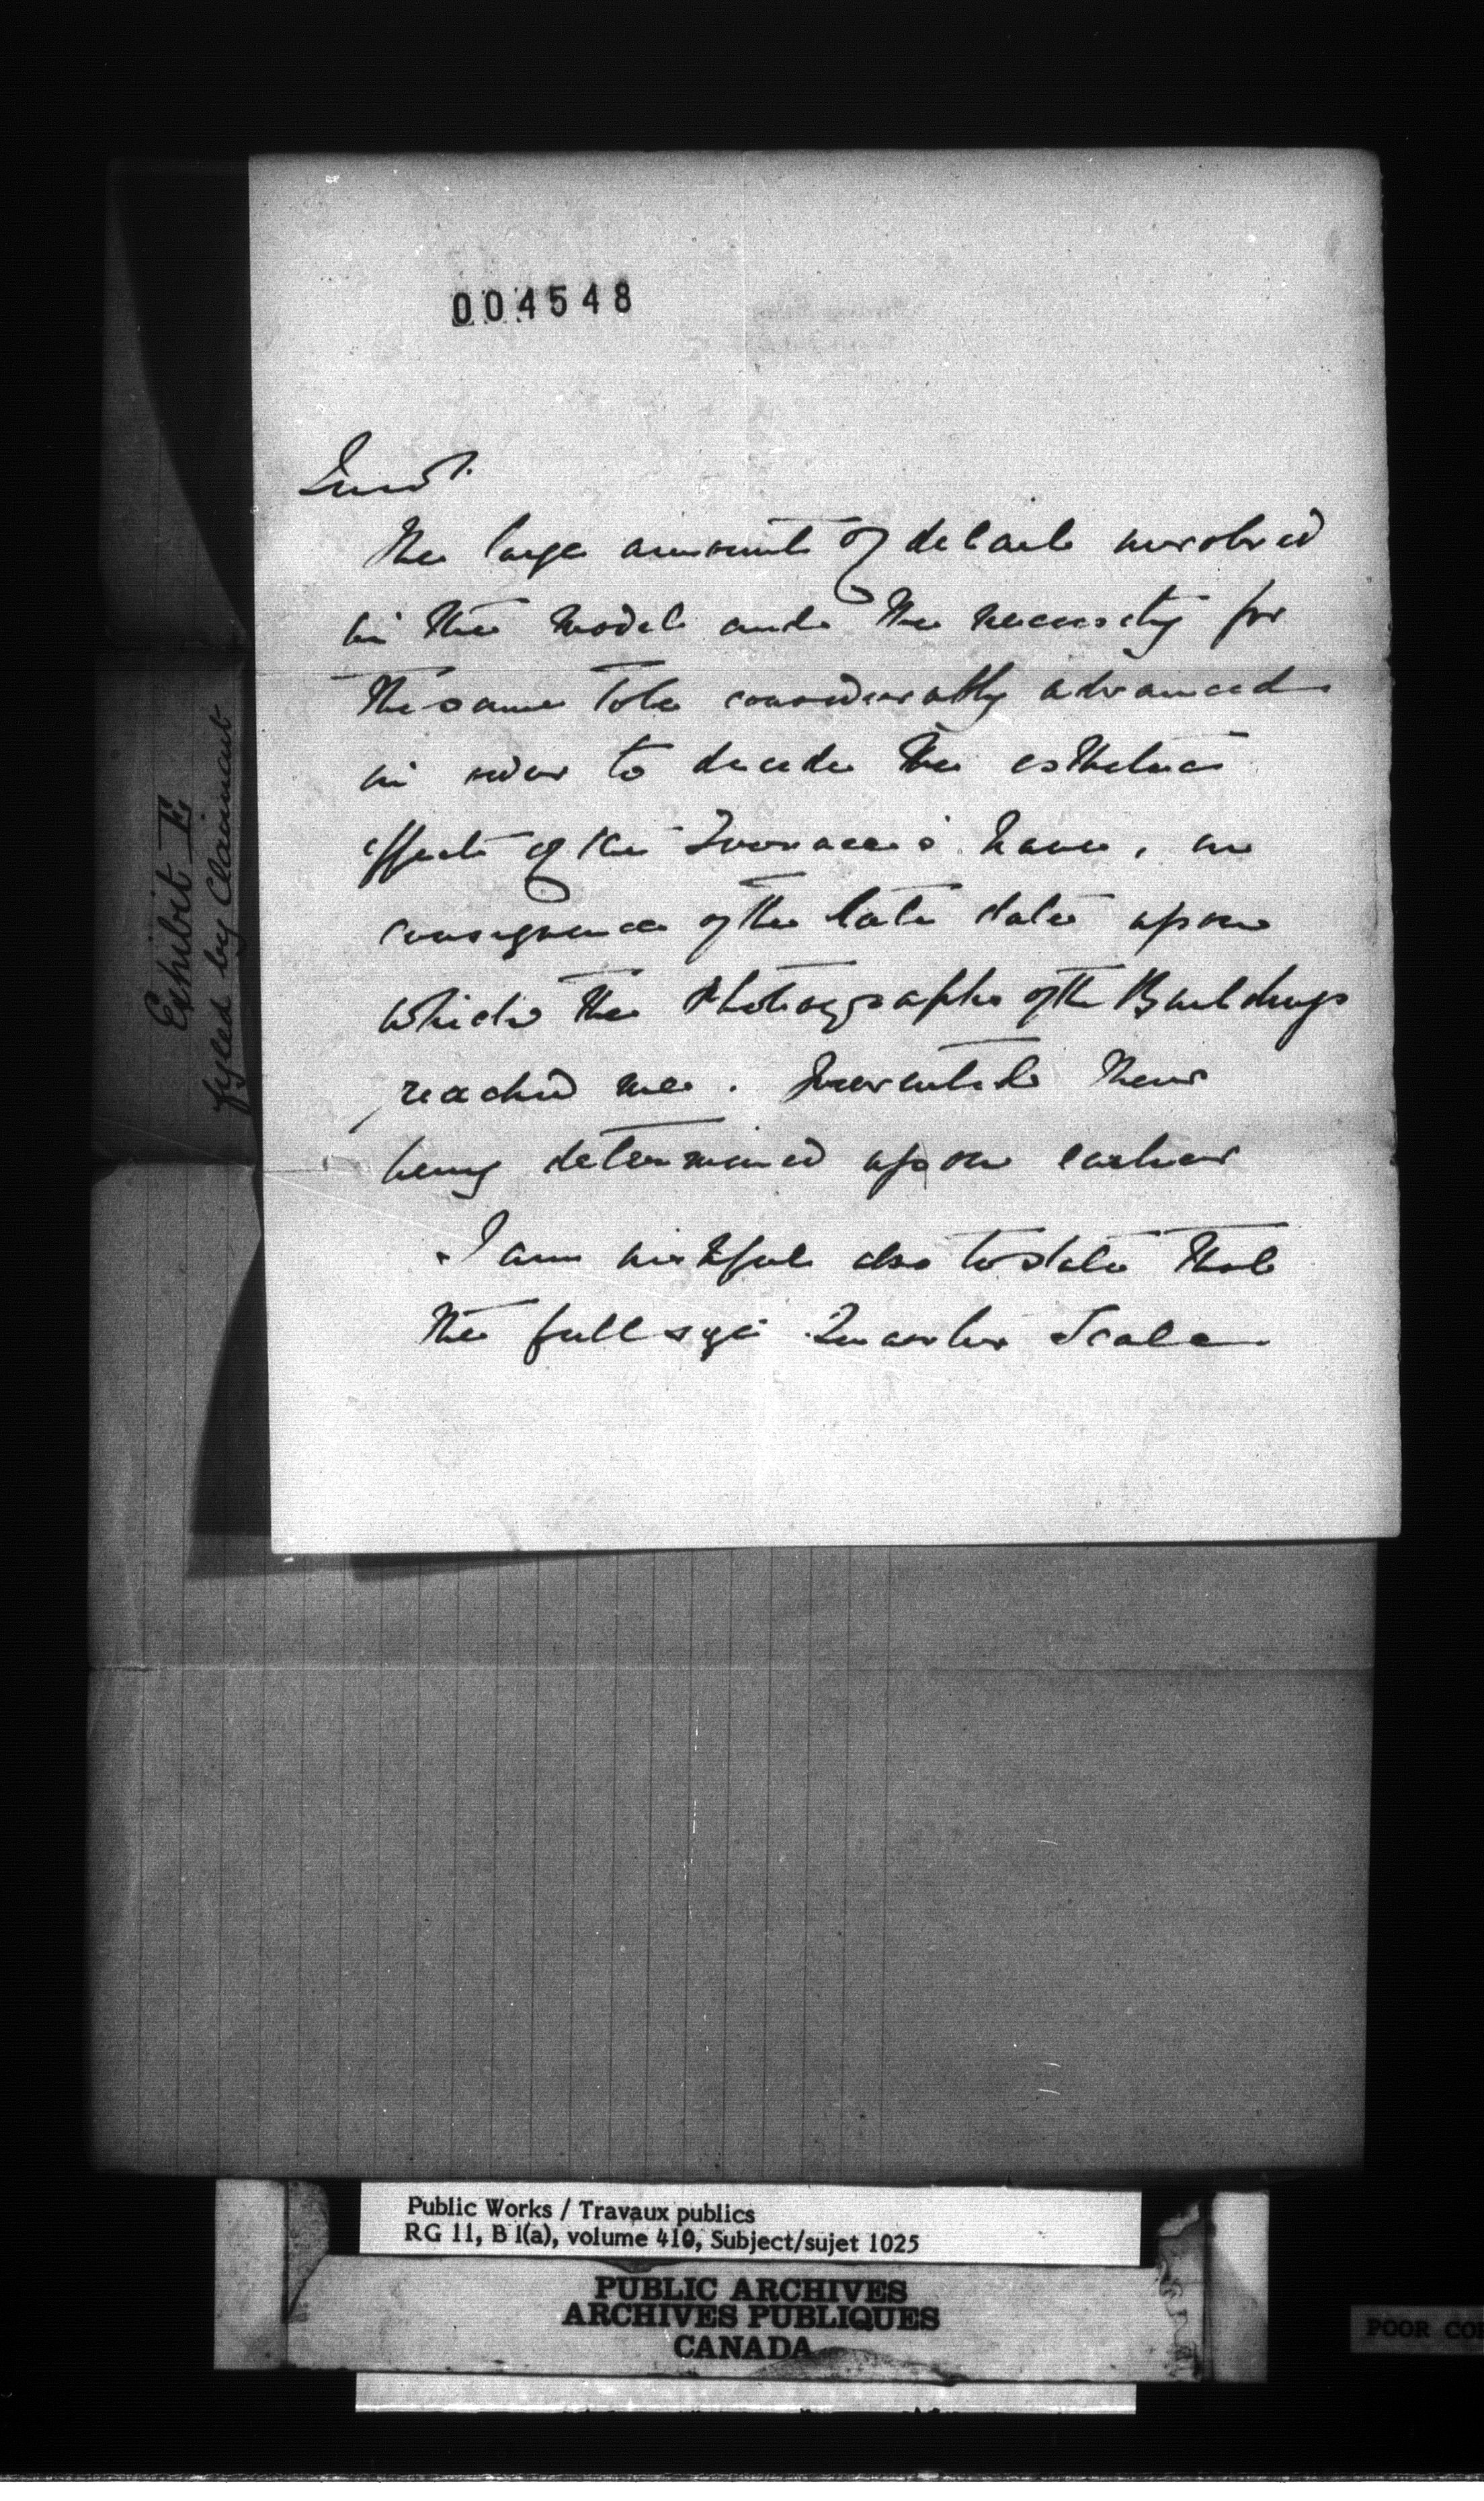 004548
Inst.
The large amount of detail involved
in the model and the necessity for
the same to be considerably advanced
in order to decide the esthetic
effect of the Terraces have, in
consequence of the late date upon
which the Photographs of the Buildings
reached me. prevented their
being determined upon earlier
I am wishful also to state that
the full size Quarter Scale
Exhibit E
fyled by Claimant
Public Works / Travaux publics
RG 11, B 1(a), volume 410, Subject/sujet 1025
PUBLIC ARCHIVES
ARCHIVES PUBLIQUES
CANADA
POOR